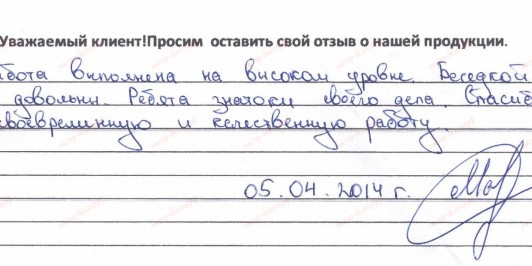 Уважаемый клиент!Просим оставить свой отзыв о нашей продукции.
бота выполнена на высоком уровне. Беседкой
довольны. Ребята знатоки своего дела. Спасиб
своевременную и качественную работу.
05.04.2014 г.